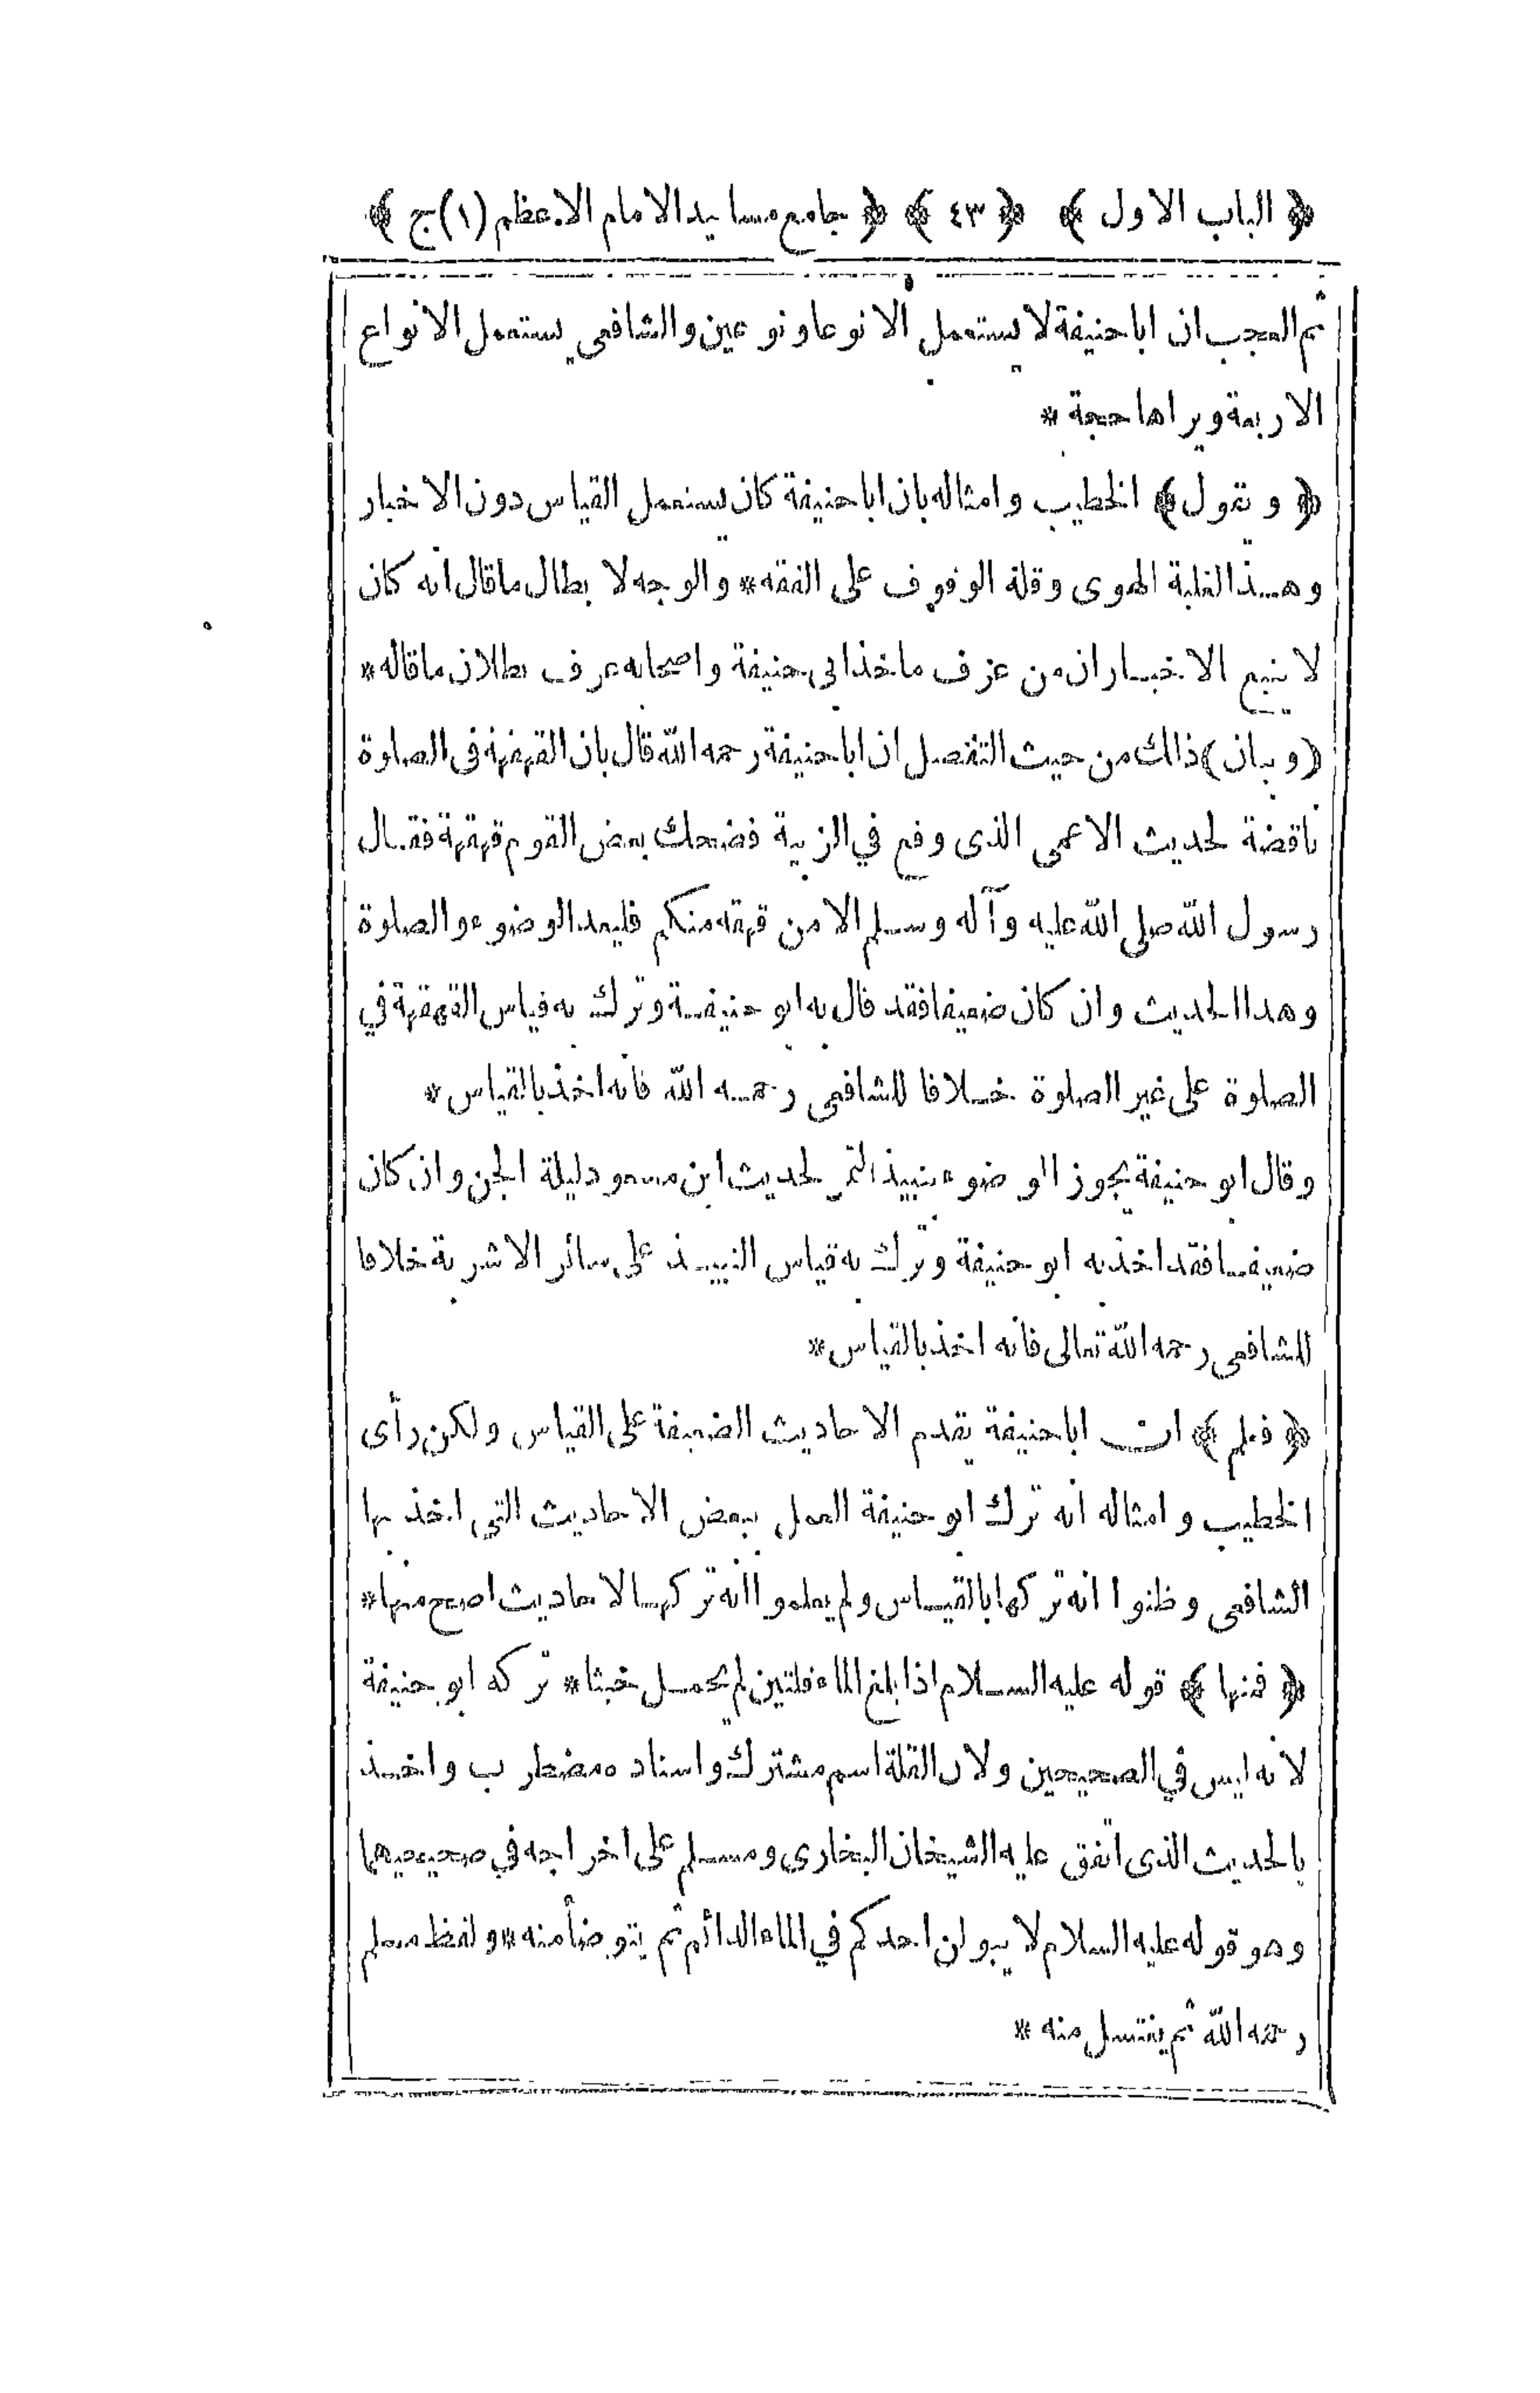 ﴿ الباب الاول ﴾ ﴿ ٤٣ ﴾ ﴿ جامع مسانيد الامام الاعظم (١) ج ﴾
ثم العجب ان ابا حنيفة لا يستعمل الا نوعا ونوعين والشافعي يستعمل الانواع
الاربعة ويراها حجة *
﴿ ويقول ﴾ الخطيب وامثاله بان ابا حنيفة كان يستعمل القياس دون الاخبار
وهذا لغلبة الهوى وقلة الوقوف على الفقه * والوجه لا بطال ما قال انه كان
لا يتبع الاخبار ان من عرف ماخذ ابى حنيفة واصحابه عرف بطلان ما قاله *
(وبيان) ذلك من حيث التفصيل ان ابا حنيفة رحمه الله قال بان القهقهة فى الصلوة
ناقضة لحديث الاعمى الذى وقع في الزبية فضحك بعض القوم قهقهة فقال
رسول الله صلى الله عليه وآله وسلم الا من قهقه منكم فليعد الوضوء والصلوة
وهذا الحديث وان كان ضعيفا فقد قال به ابو حنيفة وترك به قياس القهقهة في
الصلوة على غير الصلوة خلافا للشافعى رحمه الله فانه اخذ بالقياس *
وقال ابو حنيفة يجوز الوضوء بنبيذ التمر لحديث ابن مسعود ليلة الجن وان كان
ضعيفا فقد اخذ به ابو حنيفة وترك به قياس النبيذ على سائر الاشربة خلافا
للشافعى رحمه الله تعالى فانه اخذ بالقياس *
﴿ فعلم ﴾ ان ابا حنيفة يقدم الاحاديث الضعيفة على القياس ولكن رأى
الخطيب وامثاله انه ترك ابو حنيفة العمل ببعض الاحاديث التي اخذ بها
الشافعى وظنوا انه تركها بالقياس ولم يعلموا انه تركها لاحاديث اصح منها *
﴿ فمنها ﴾ قوله عليه السلام اذا بلغ الماء قلتين لم يحمل خبثا * تركه ابو حنيفة
لانه ليس في الصحيحين ولان القلة اسم مشترك واسناده مضطرب واخذ
بالحديث الذى اتفق عليه الشيخان البخارى ومسلم على اخراجه في صحيحيهما
وهو قوله عليه السلام لا يبولن احدكم في الماء الدائم ثم يتوضأ منه * ولفظ مسلم
رحمه الله ثم يغتسل منه *